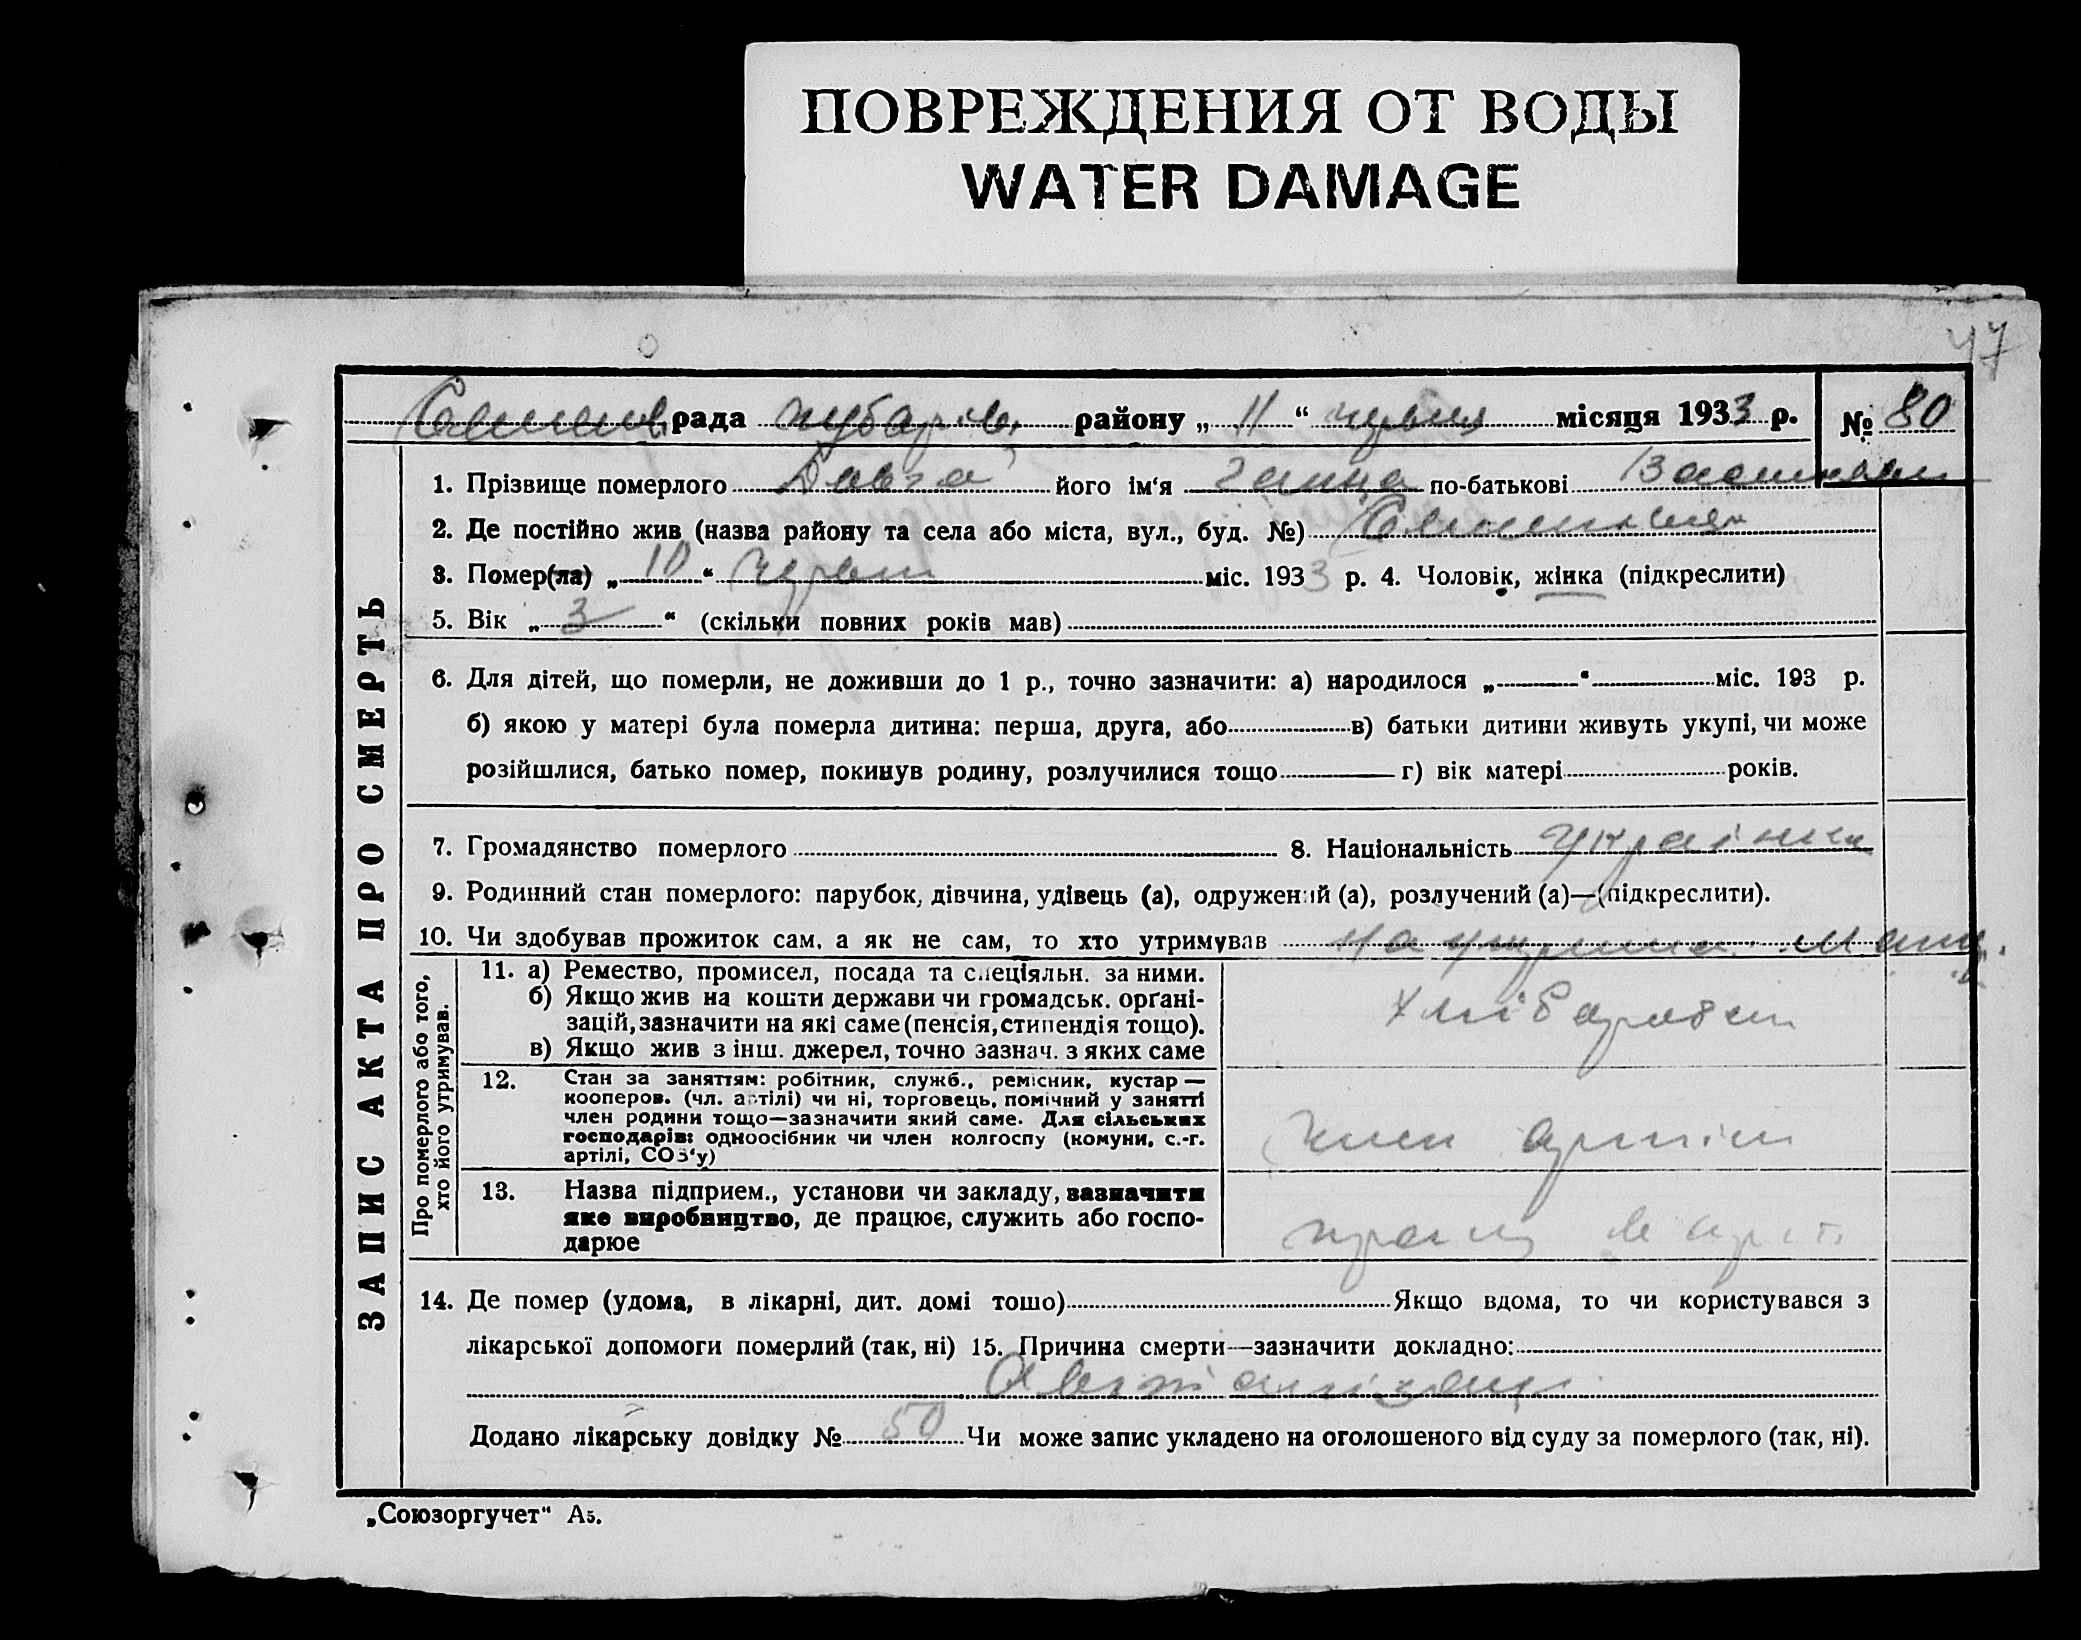 ПОВРЕЖДЕНИЯ ОТ ВОДЫ
WATER DAMAGE
47
рада Чубарів. району „ 11 “ червня місяця 1933 р. № 80
1. Прізвище померлого Довга його ім‘я Ганна по-батькові
2. Де постійно жив (назва району та села або міста, вул., буд. №)
3. Помер(ла) „ 10 “ червня міс. 1933 р. 4. Чоловік, жінка (підкреслити)
5. Вік „ 3 “ (скільки повних років мав)
6. Для дітей, що померли, не доживши до 1 р., точно зазначити: а) народилося „ “ міс. 193 р.
б) якою у матері була померла дитина: перша, друга, або в) батьки дитини живуть укупі, чи може
розійшлися, батько помер, покинув родину, розлучилися тощо г) вік матері років.
7. Громадянство померлого 8. Національність українка
9. Родинний стан померлого: парубок, дівчина, удівець (а), одружений (а), розлучений (а)—(підкреслити).
10. Чи здобував прожиток сам, а як не сам, то хто утримував на утриман.
11. а) Ремество, промисел, посада та спеціяльн. за ними.
б) Якщо жив на кошти держави чи громадськ. орґані-
зацій, зазначити на які саме (пенсія, стипендія тощо).
в) Якщо жив з інш. джерел, точно зазнач. з яких саме
хлібороб
12. Стан за заняттям: робітник, служб., ремісник, кустар—
кооперов. (чл. артілі) чи ні, торговець, помічний у занятті
член родини тощо—зазначити який саме. Для сільських
господарів: одноосібник чи член колгоспу (комуни, с.-г.
артілі, СОЗ‘у)
член артіли
13. Назва підприєм., установи чи закладу, зазначити
яке виробництво, де працює, служить або госпо-
дарюе
працю в арт.
14. Де помер (удома, в лікарні, дит. домі тошо) Якщо вдома, то чи користувався з
лікарської допомоги померлий (так, ні) 15. Причина смерти—зазначити докладно:
Додано лікарську довідку № 50 Чи може запис укладено на оголошеного від суду за померлого (так, ні).
„Союзоргучет“ А5.
ЗАПИС АКТА ПРО СМЕРТЬ
Про померлого або того,
хто його утримував.